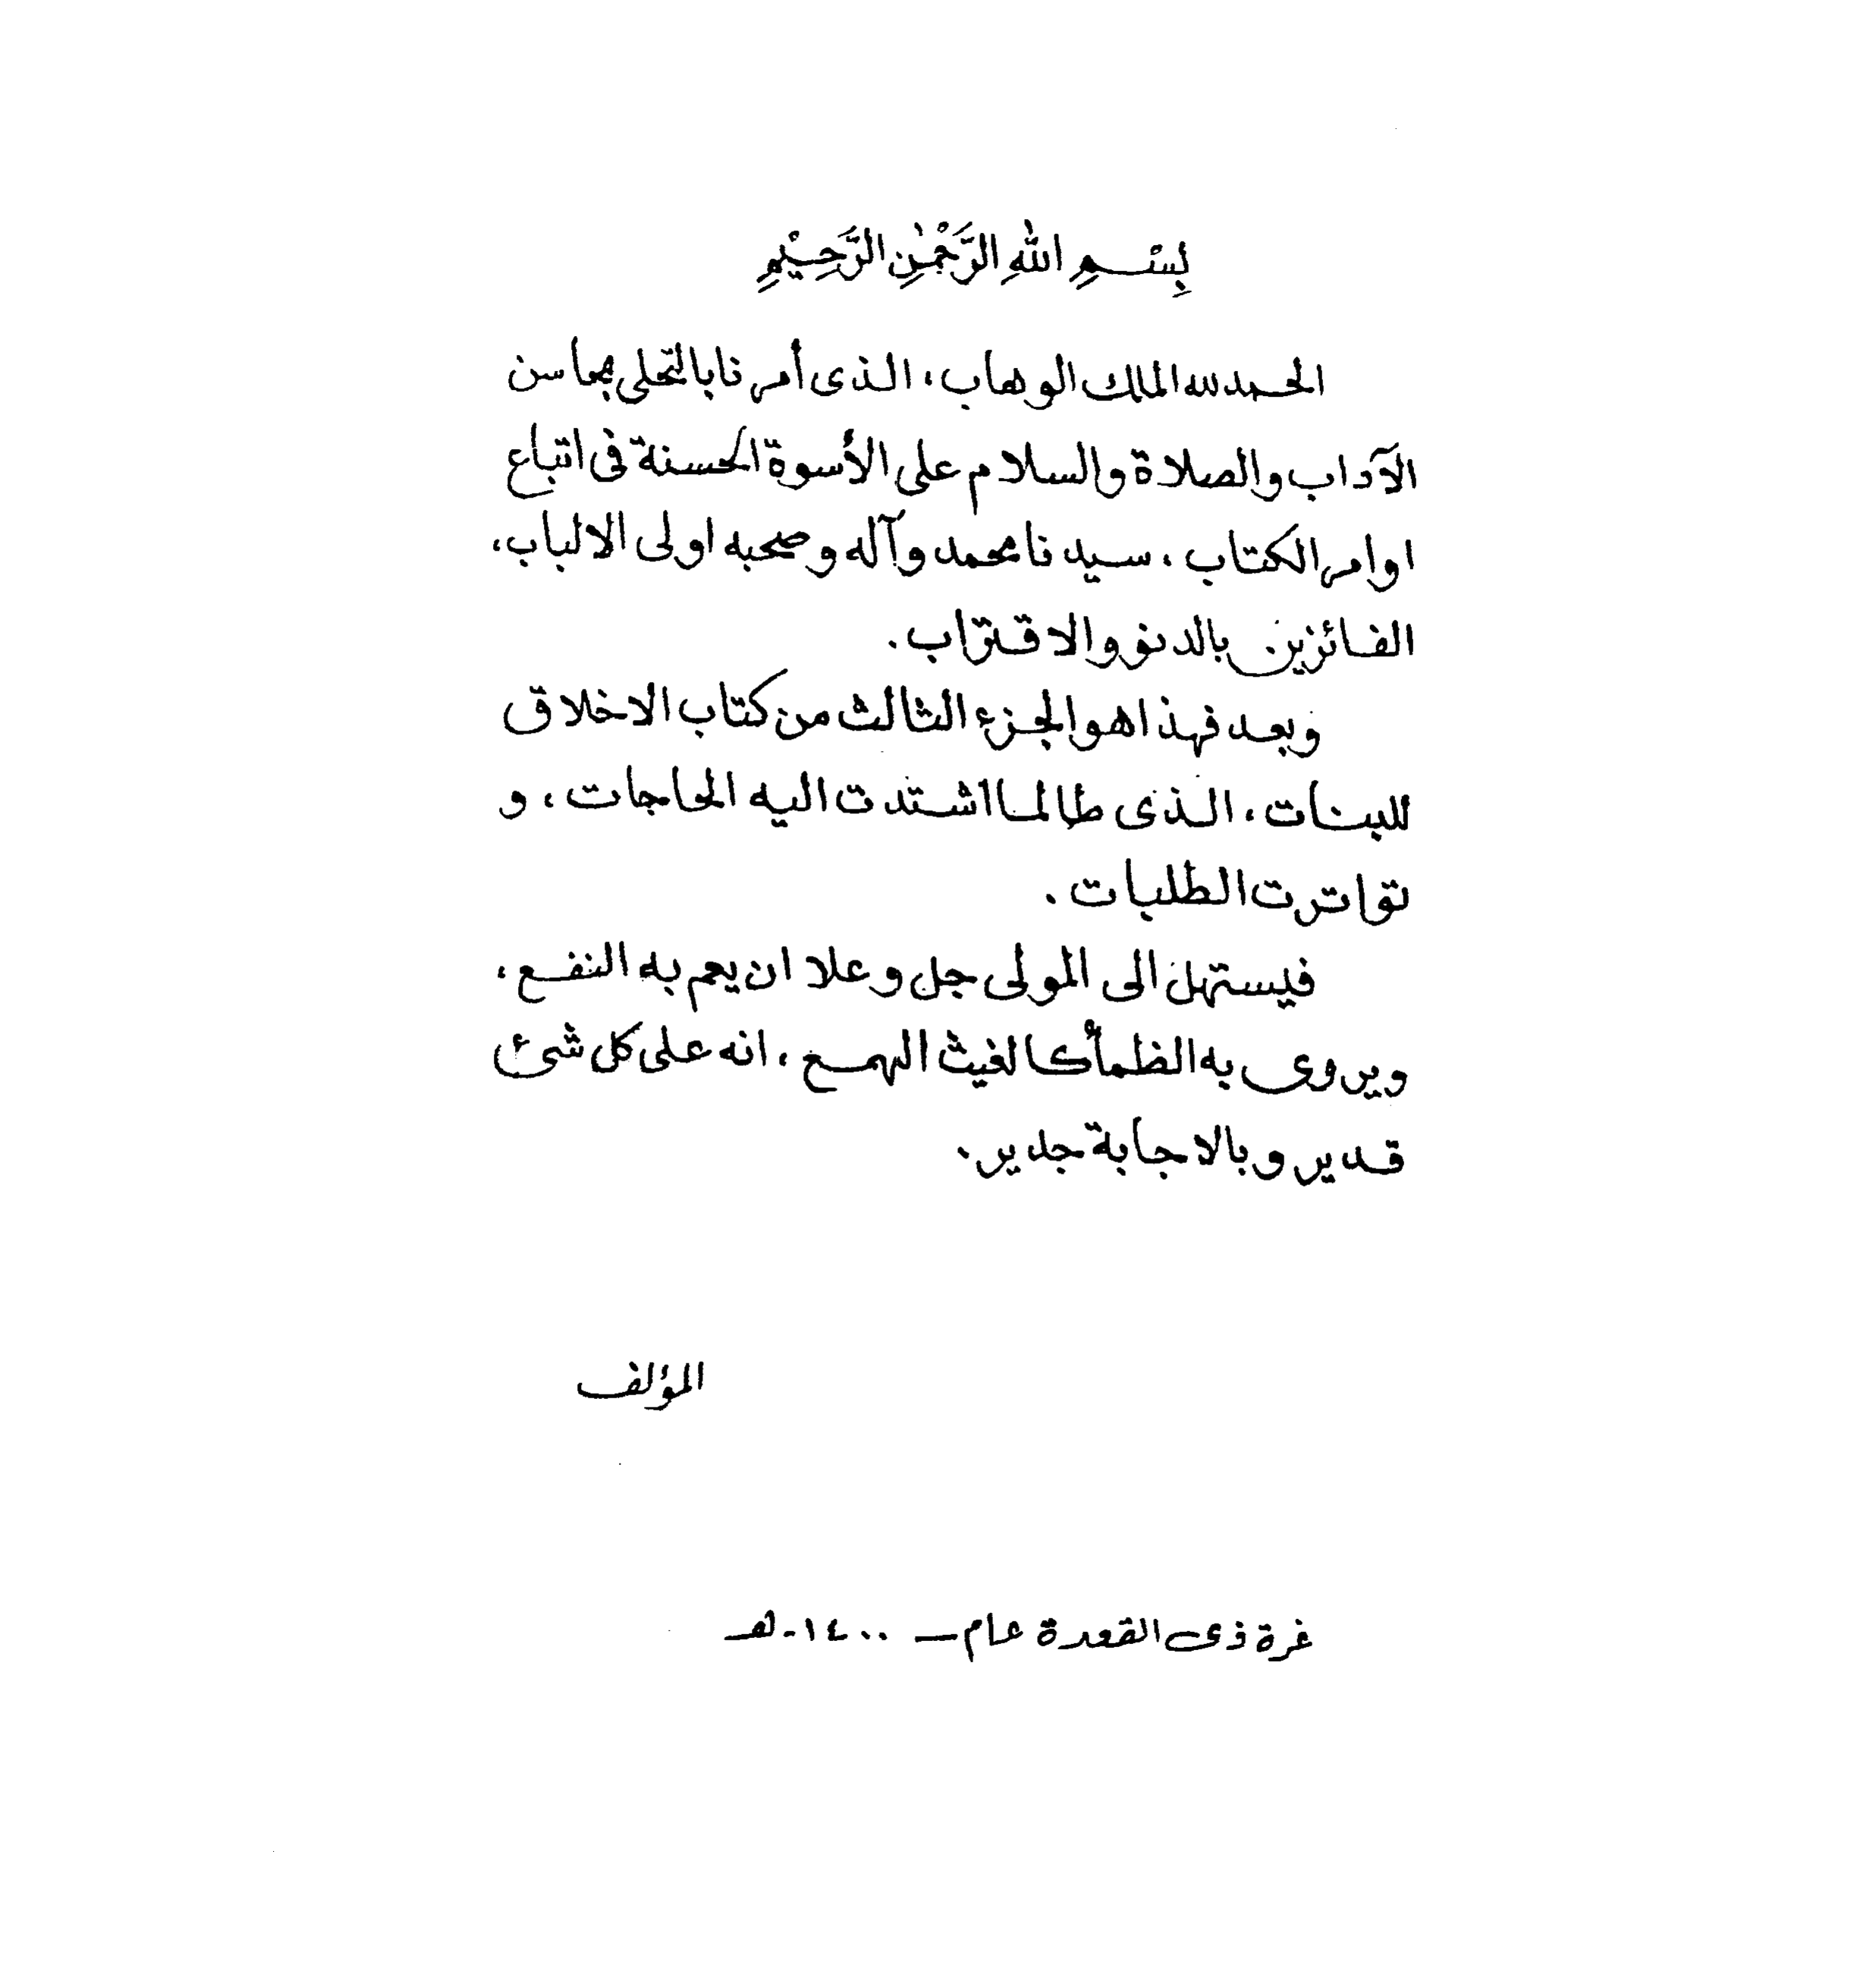 بِسْمِ اللهِ الرَّحْمٰنِ الرَّحِيْمِ
الحمد لله الملك الوهاب، الذى أمرنا بالتحلى بمحاسن
الآداب والصلاة والسلام على الأسوة الحسنة فى اتباع
اوامر الكتاب، سيدنا محمد وآله وصحبه اولى الالباب،
الفائزين بالدنو والاقتراب.
وبعد فهذا هو الجزء الثالث من كتاب الاخلاق
للبنات، الذى طالما اشتدت اليه الحاجات، و
تواترت الطلبات.
فيستهل الى المولى جل وعلا ان يعم به النفع،
ويروى به الظمأ كالغيث الهمع، انه على كل شئ
قدير وبالاجابة جدير.
المؤلف
غرة ذى القعدة عام — ١٤٠٠ - هـ